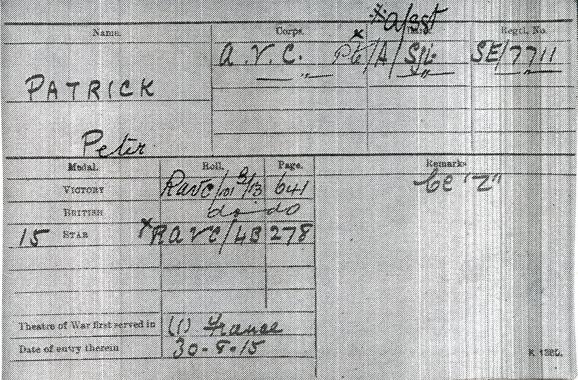 Name. Corps. Rank. Regtl. No.
* A/SSt
PATRICK A.V.C. * Pte/A/Sjt. SE/7711
" " "
Peter.
Medal. Roll. Page. Remarks
VICTORY RAVC/101 B/13 641 Ce "Z"
BRITISH do do
15 STAR * RAVC/4B 278
Theatre of War first served in (1) France
Date of entry therein 30-8-15
K 1380.